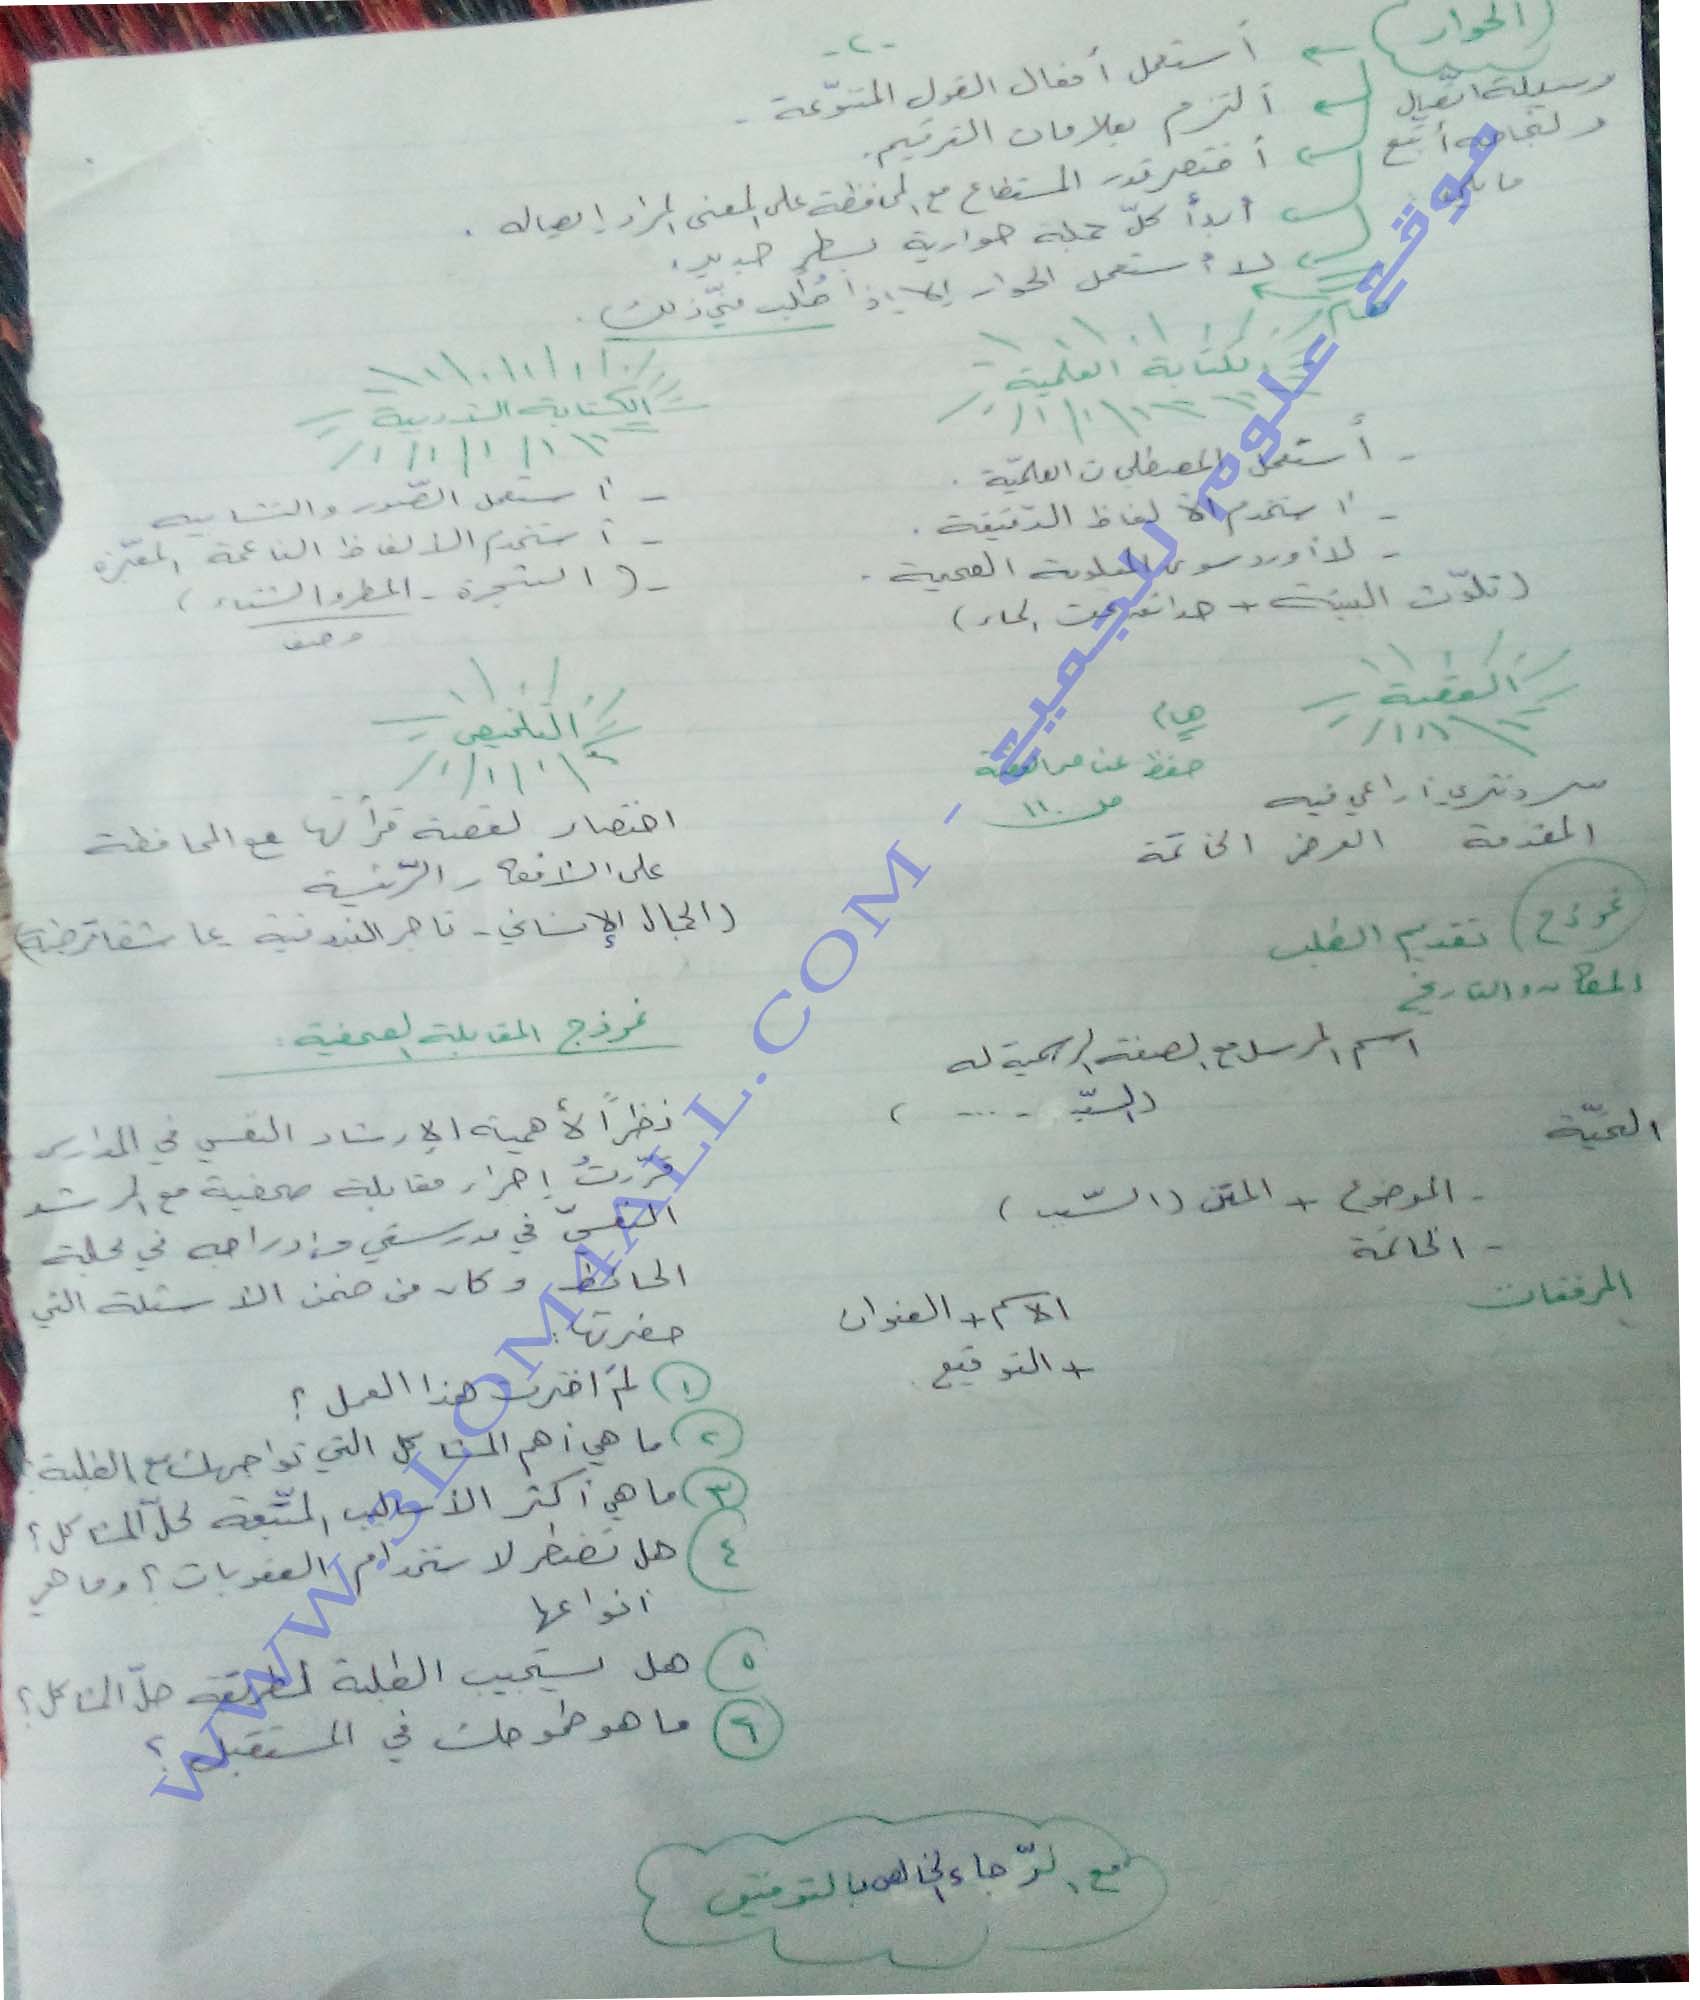 -٢-
الحوار
وسيلة اتّصال
ولنجاحه أتبع
ما يلي
أستعمل أفعال القول المتنوّعة.
ألتزم بعلامات الترقيم.
أختصر قدر المستطاع مع المحافظة على المعنى المراد إيصاله.
أبدأ كلّ جملة حوارية بسطر جديد.
لا أستعمل الحوار إلا إذا طُلب منّي ذلك.
هام
الكتابة العلمية
- أستعمل المصطلحات العلميّة.
- أستخدم الألفاظ الدقيقة.
- لا أورد سوى المعلومة الصحيحة.
(تلوّث البيئة + حدائق تحت الماء)
الكتابة الأدبية
- أستعمل الصّور والتشابيه
- أستخدم الألفاظ الناعمة المعبّرة
- (الشجرة - المطر والشتاء)
وصف
القصة
هام
حفظ عناصر القصة
ص ١١٠
سرد نثري أراعي فيه
المقدمة العرض الخاتمة
التلخيص
اختصار لقصة قرأتها مع المحافظة
على الأفكار الرّئيسية
(الجمال الإنساني - تاجر البندقية
نموذج تقديم الطلب
المكان والتاريخ
اسم المرسل مع الصفة الرسمية له
(السيّد ......)
التحيّة
- الموضوع + المتن (السّبب)
- الخاتمة
المرفقات
الاسم + العنوان
+ التوقيع.
نموذج المقابلة الصحفية:
نظراً لأهمية الإرشاد النفسي في المدارس
قرّرتُ إجراء مقابلة صحفية مع المرشد
النفسيّ في مدرستي وإدراجه في مجلة
الحائط وكان من ضمن الأسئلة التي
حضرتها:
١ لمَ اخترت هذا العمل؟
٢ ما هي أهم المشاكل التي تواجهك مع الطلبة؟
٣ ما هي أكثر الأساليب المتّبعة لحلّ المشاكل؟
٤ هل تضطر لاستخدام العقوبات؟ وما هي
أنواعها
٥ هل يستجيب الطلبة لطريقة حلّ المشاكل؟
٦ ما هو طموحك في المستقبل؟
مع الرّجاء الخالص بالتوفيق
موقع علوم للجميع - WWW.3LOM4ALL.COM